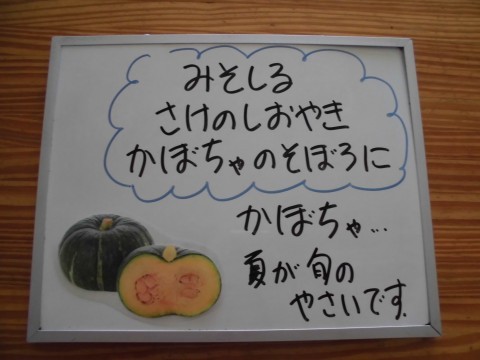 みそしる
さけのしおやき
かぼちゃのそぼろに
かぼちゃ…
夏が旬の
やさいです.